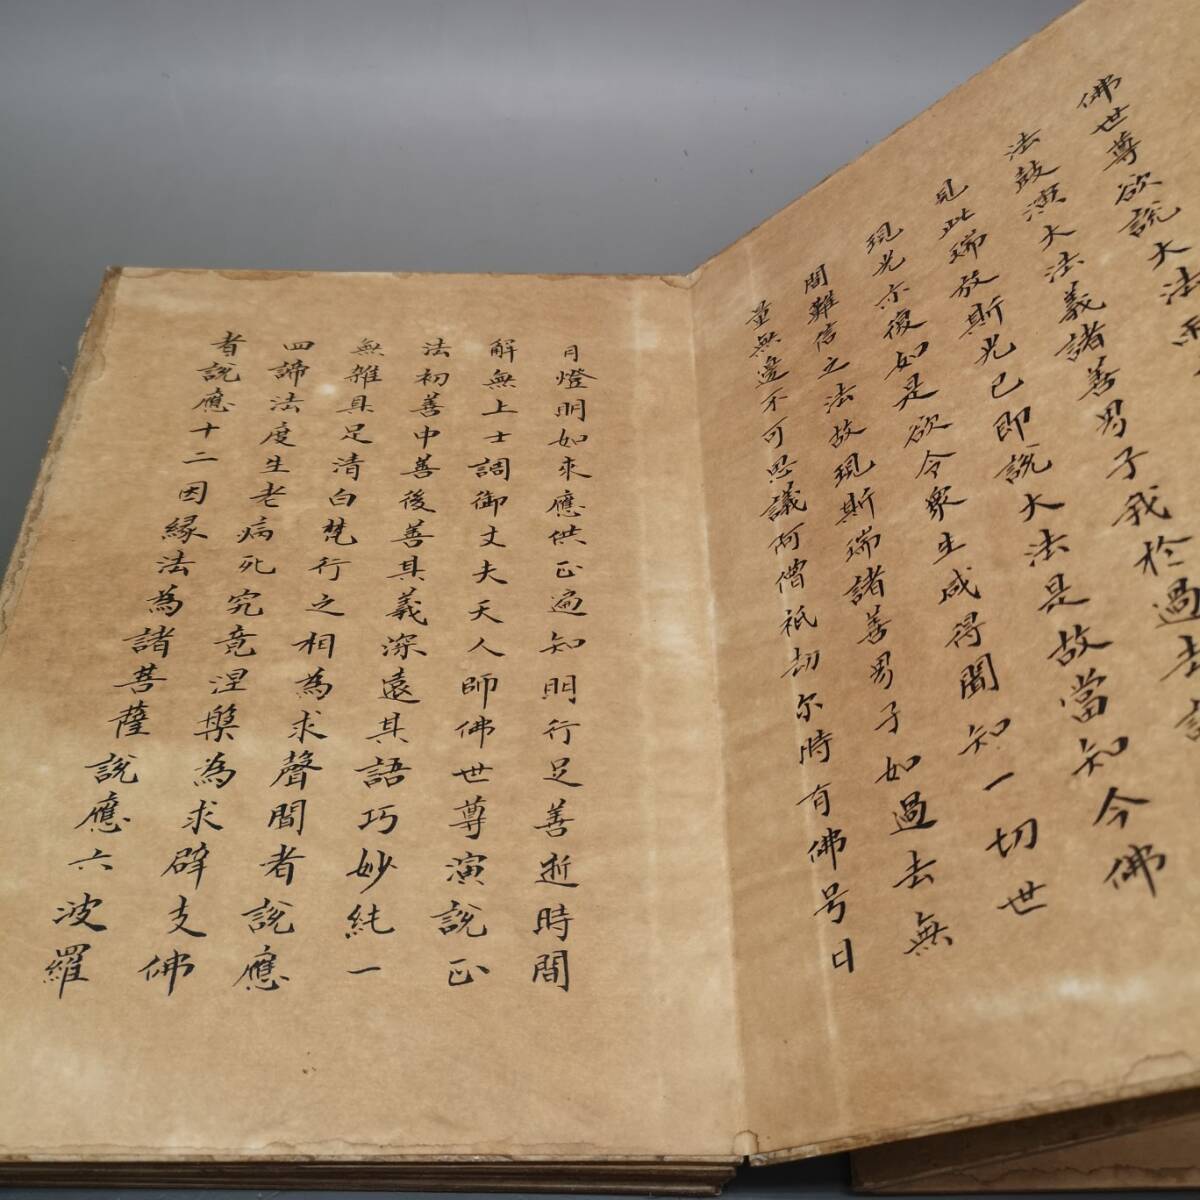 佛世尊欲說大法雨
法鼓演大法義諸善男子我於過去諸
見此瑞放斯光已即說大法是故當知今佛
現光亦復如是欲令衆生咸得聞知一切世
間難信之法故現斯瑞諸善男子如過去無
量無邊不可思議阿僧祇劫尓時有佛号日
月燈明如來應供正遍知明行足善逝時間
解無上士調御丈夫天人師佛世尊演說正
法初善中善後善其義深遠其語巧妙純一
無雜具足清白梵行之相為求聲聞者說應
四諦法度生老病死究竟涅槃為求辟支佛
者說應十二因緣法為諸菩薩說應六波羅